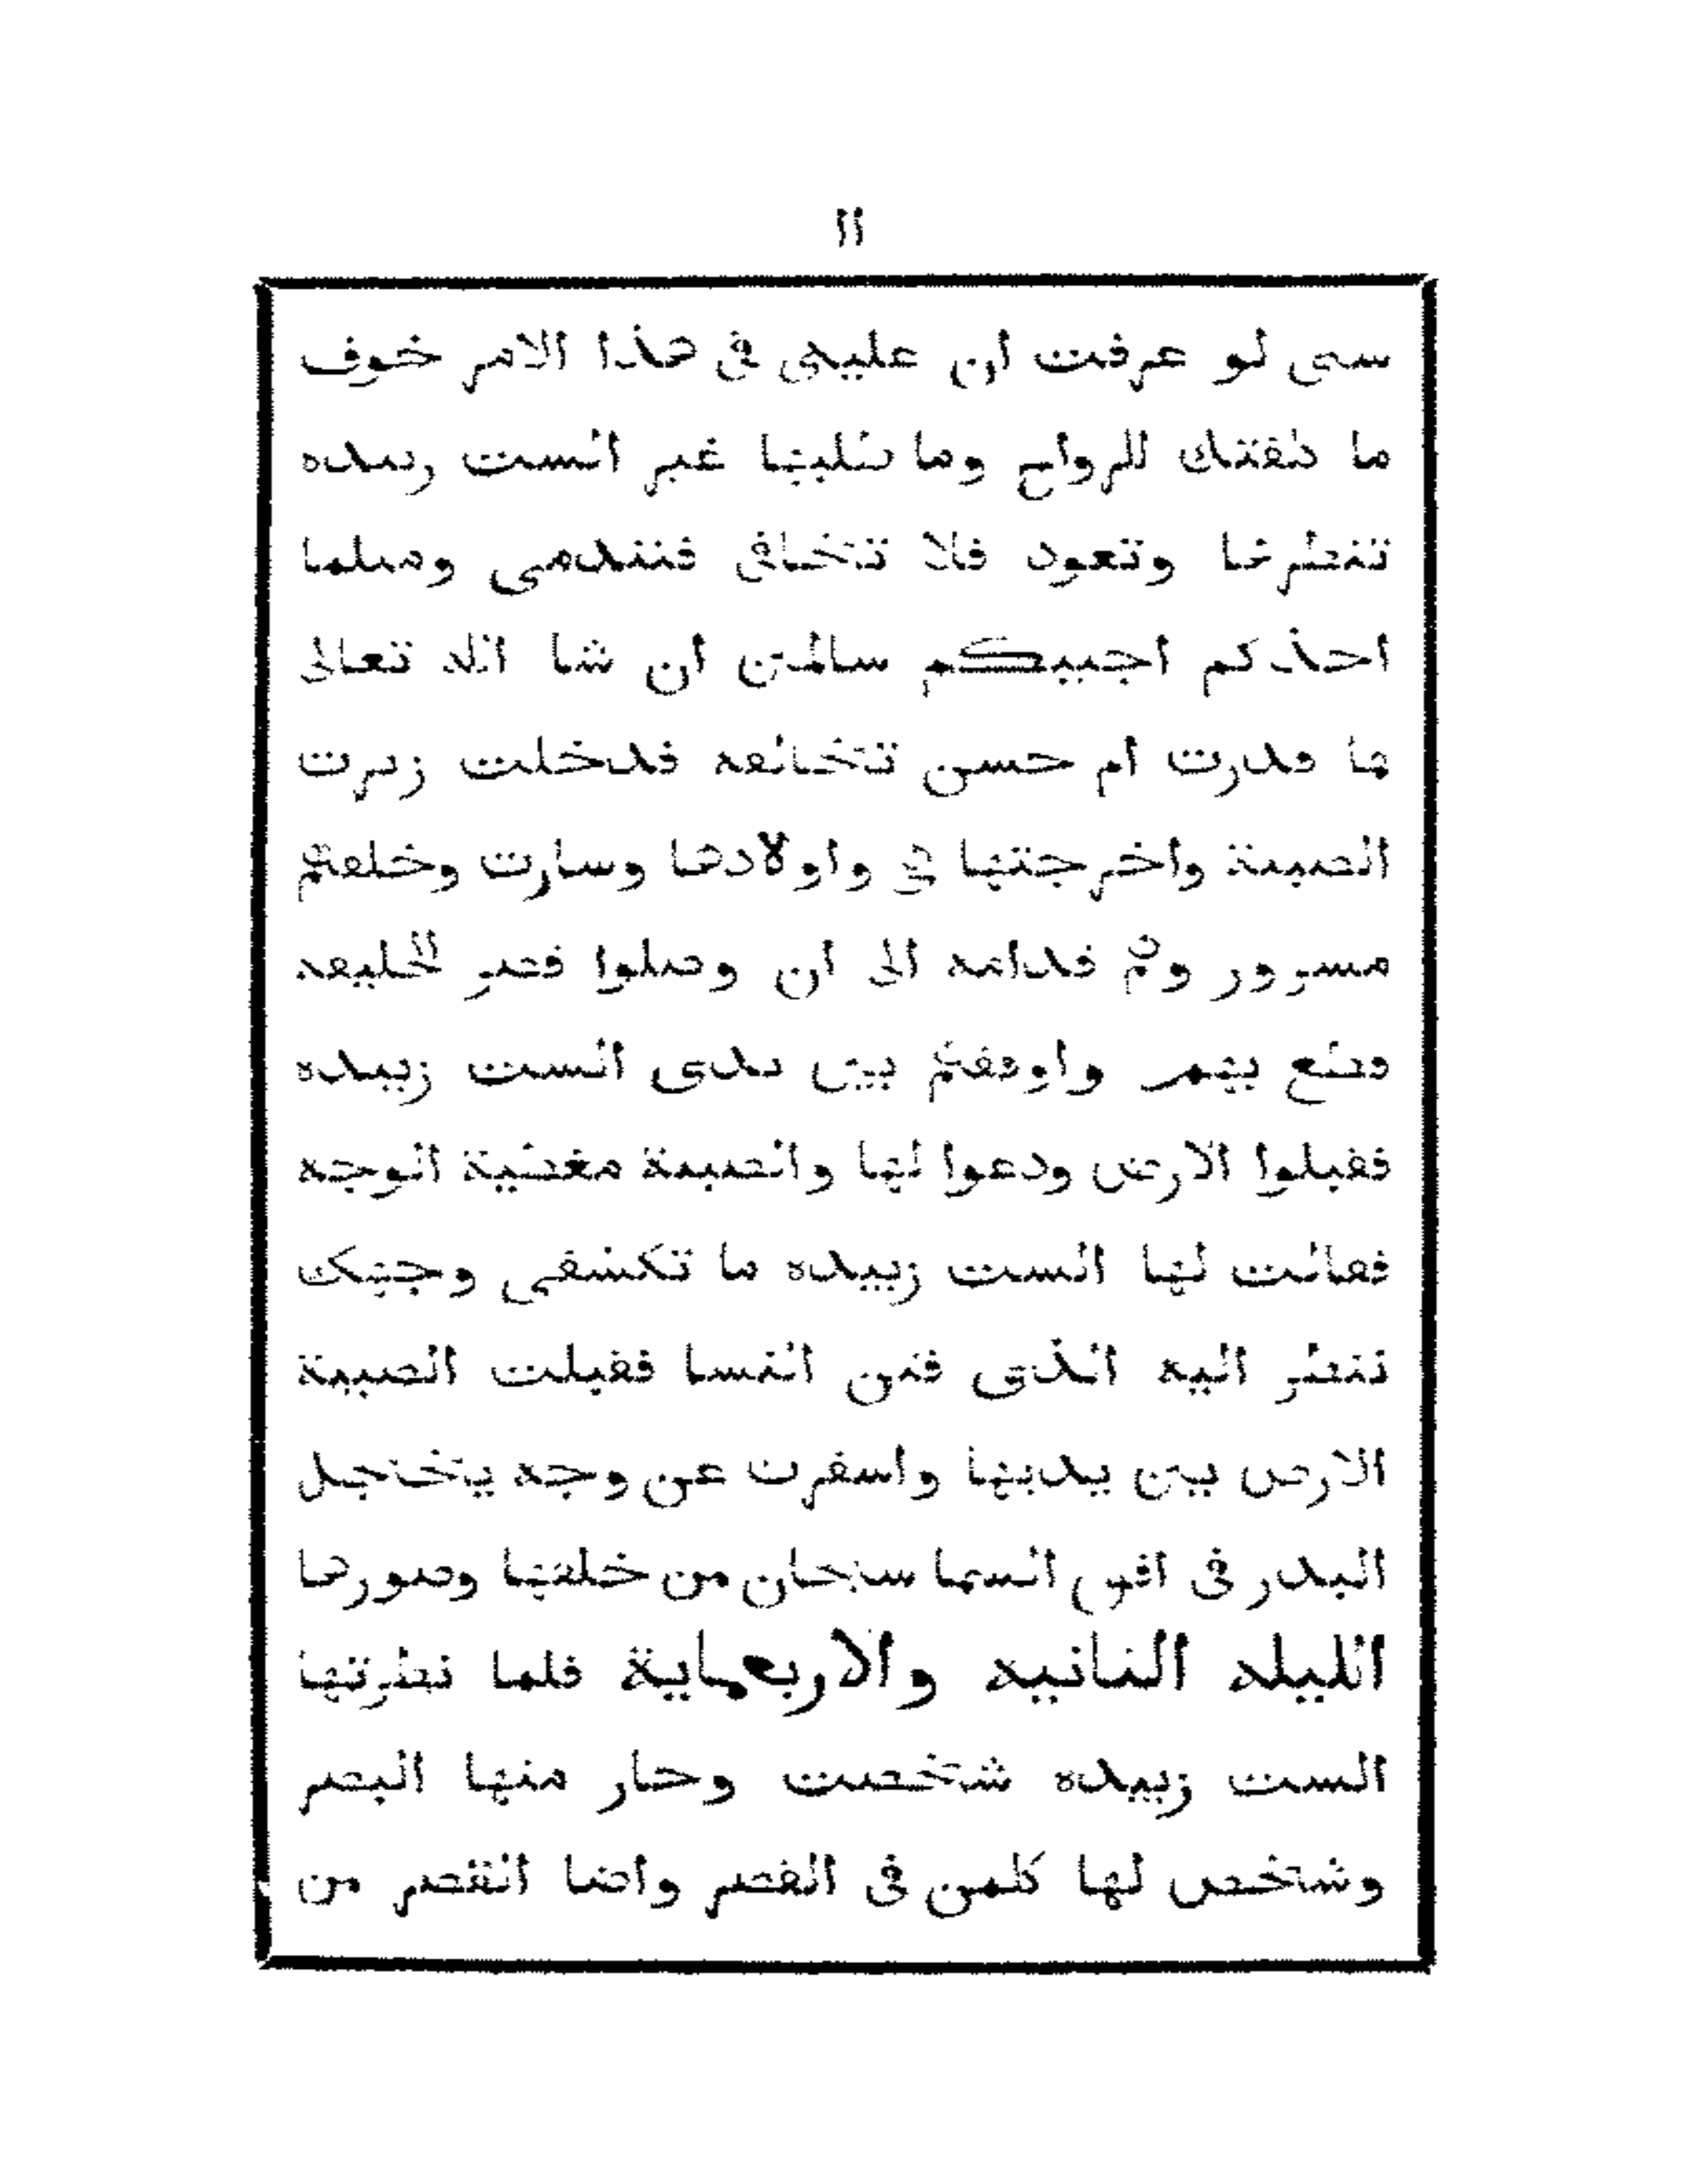 ١١
ستى لو عرفت ان عليكى فى هذا الامر خوف
ما كلفتك للرواح وما طلبها غير الست زبيده
تنظرها وتعود فلا تتخالفى فتندمى ومثلما
اخذكم اجيبكم سالمين ان شا الله تعالى
ما قدرت ام حسن تتخالفه فدخلت زيرت
الصبية واخرجتها هى واولادها وسارت وخلفهم
مسرور وهم قدامه الى ان وصلوا قصر الخليفه
فطلع بهم واوقفهم بين يدى الست زبيده
فقبلوا الارض ودعوا لها والصبية مغطية الوجه
فقالت لها الست زبيده ما تكشفى وجهك
ننظر اليه الذى فتن النسا فقبلت الصبية
الارض بين يديها واسفرت عن وجه يتخجل
البدر فى افق السما سبحان من خلقها وصورها
الليله الثانيه والاربعماية فلما نظرتها
الست زبيده شخصت وحار منها البصر
وشخص لها كلمن فى القصر واضا القصر من